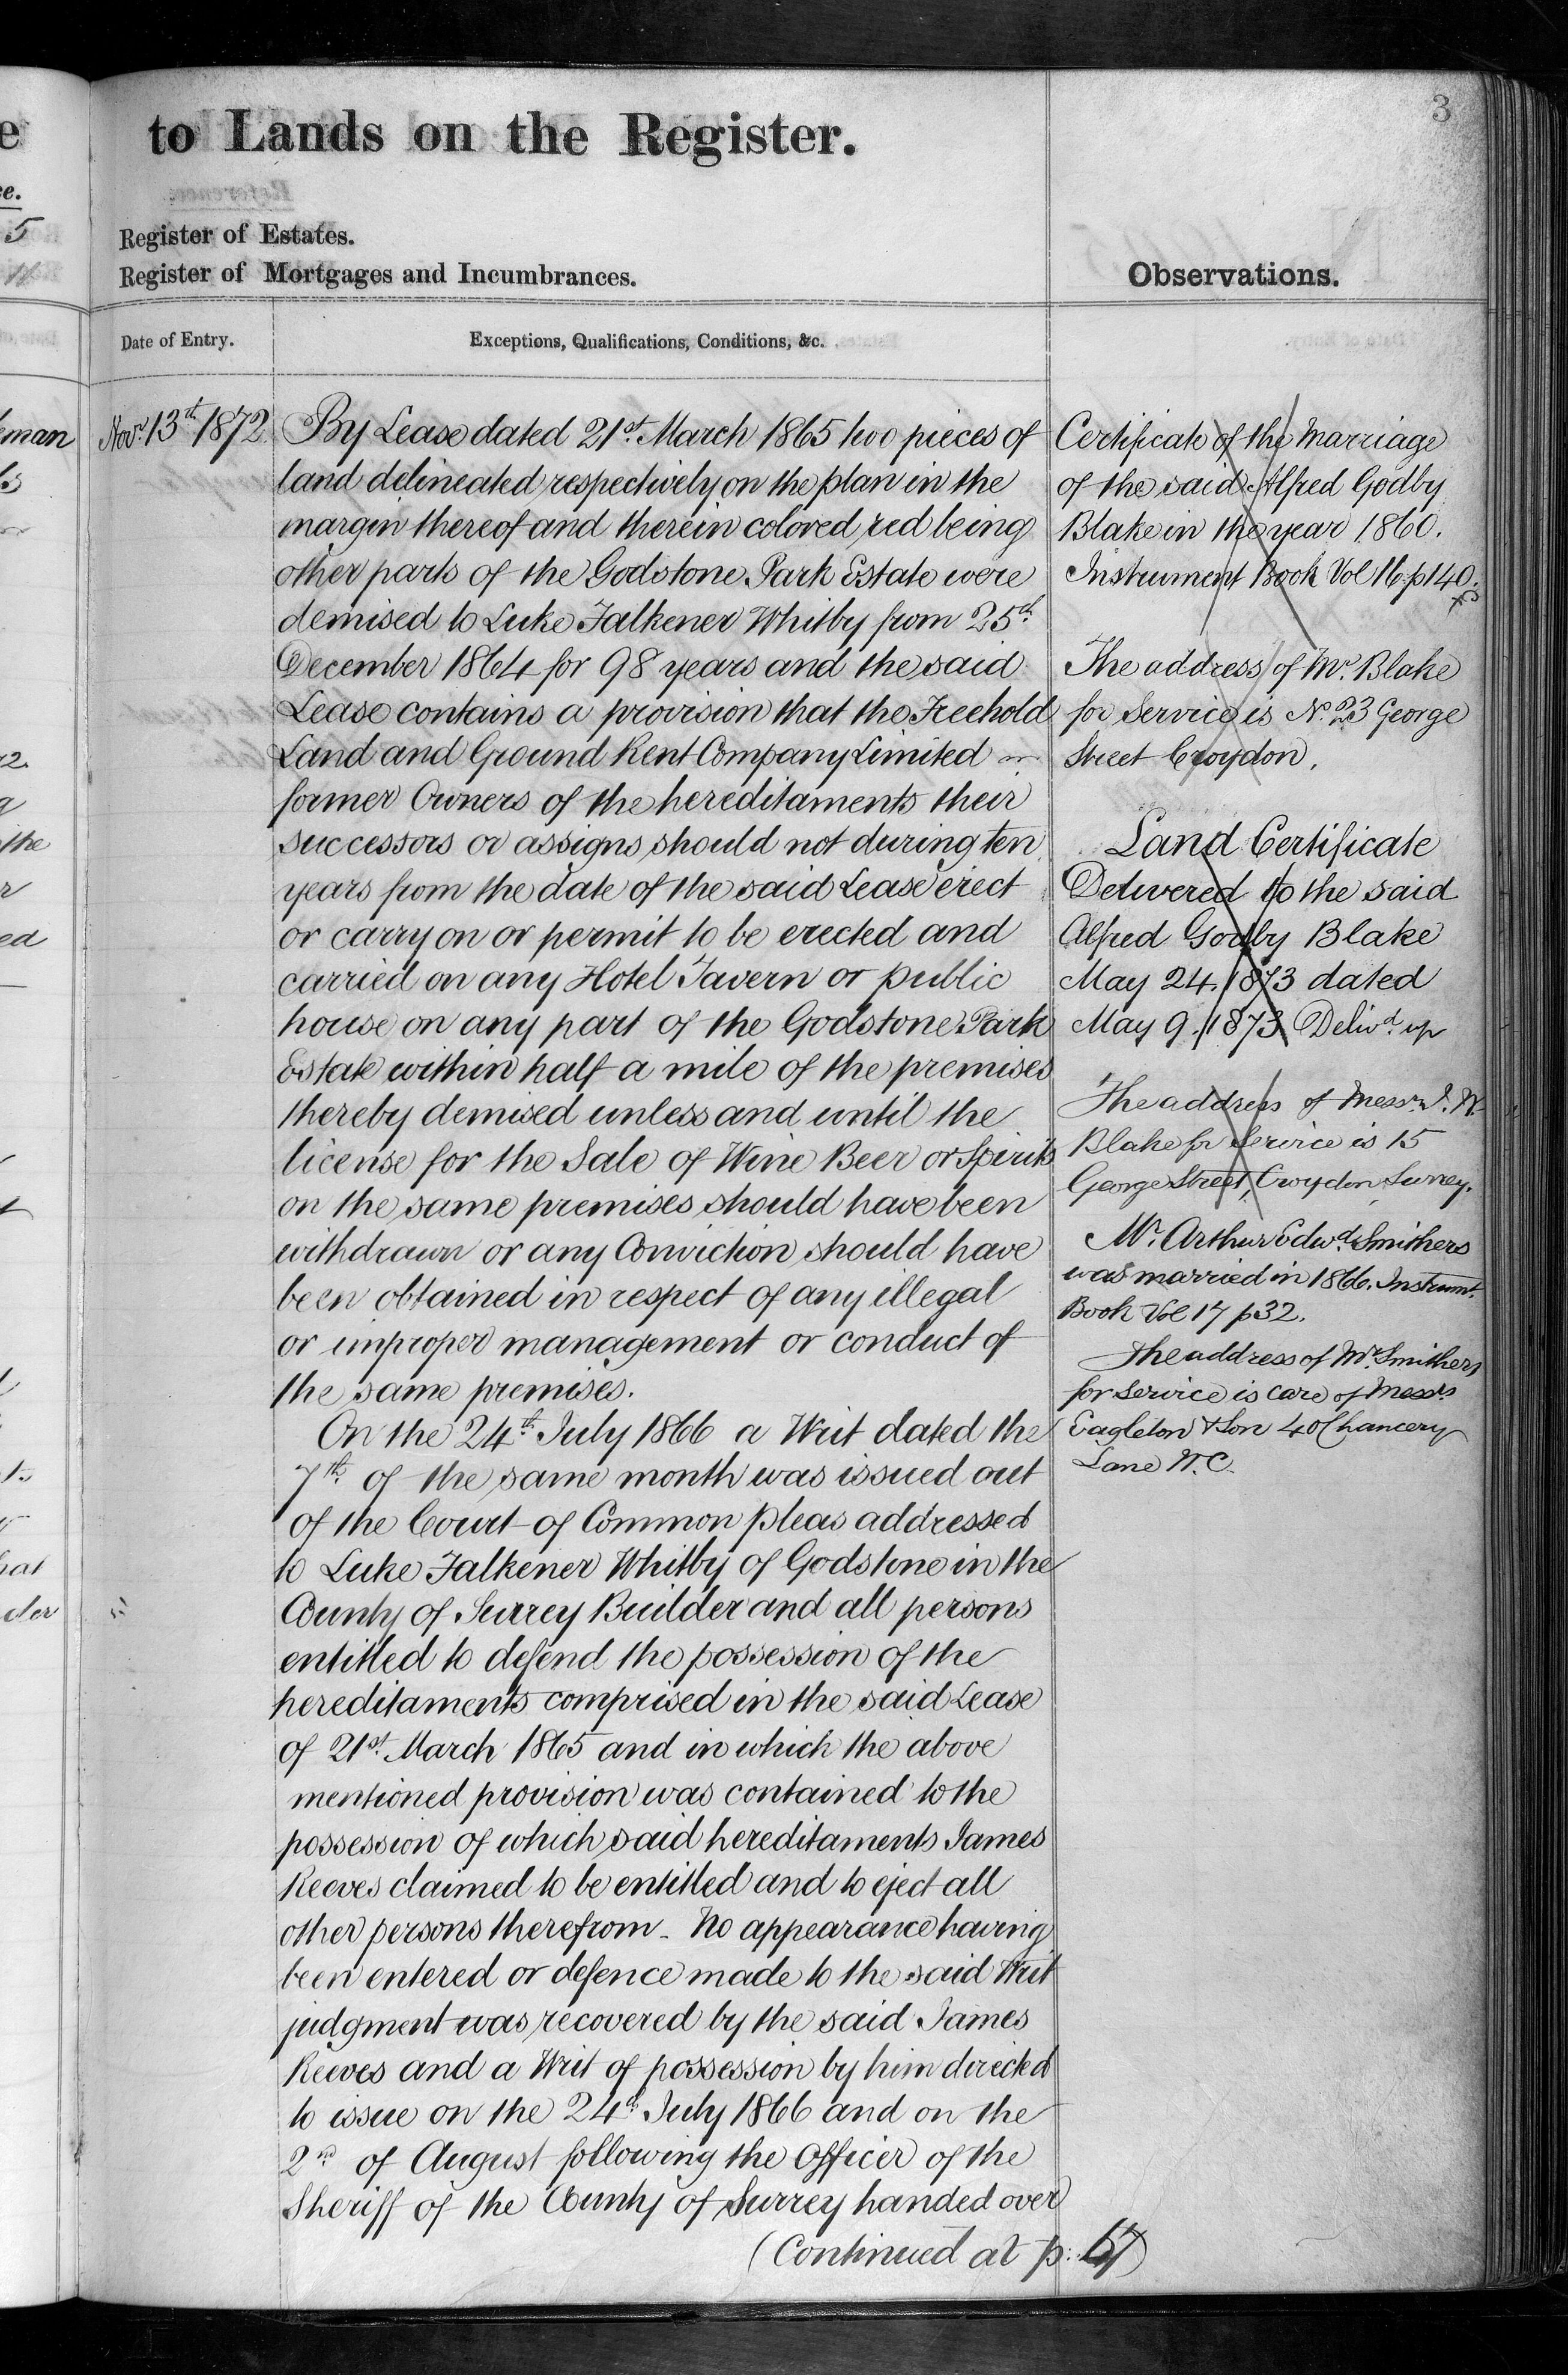 3
to Lands on the Register.
Register of Estates.
Register of Mortgages and Incumbrances.
Observations.
Date of Entry.
Exceptions, Qualifications, Conditions, &c.
Novr. 13th 1872
By Lease dated 21st. March 1865 two pieces of
land delineated respectively on the plan in the
margin thereof and therein colored red being
other parts of the Godstone Park Estate were
demised to Luke Falkener Whitby from 25th
December 1864 for 98 years and the said
Lease contains a provision that the Freehold
Land and Ground Rent Company Limited
former Owners of the hereditaments their
successors or assigns should not during ten
years from the date of the said Lease erect
or carry on or permit to be erected and
carried on any Hotel Tavern or public
house on any part of the Godstone Park
Estate within half a mile of the premises
thereby demised unless and until the
license for the Sale of Wine Beer or Spirits
on the same premises should have been
withdrawn or any Conviction should have
been obtained in respect of any illegal
or improper management or conduct of
the same premises.
On the 24th. July 1866 a Writ dated the
7th. of the same month was issued out
of the Court of Common pleas addressed
to Luke Falkener Whitby of Godstone in the
County of Surrey Builder and all persons
entitled to defend the possession of the
hereditaments comprised in the said Lease
of 21st. March 1865 and in which the above
mentioned provision was contained to the
possession of which said hereditaments James
Reeves claimed to be entitled and to eject all
other persons therefrom _ No appearance having
been entered or defence made to the said Writ
judgment was recovered by the said James
Reeves and a Writ of possession by him directed
to issue on the 24th July 1866 and on the
2nd of August following the Officer of the
Sheriff of the County of Surrey handed over
(Continued at p:
Certificate of the Marriage
of the said Alfred Godby
Blake in the year 1860.
Instrument Book Vol 16 p140.
The address of Mr. Blake
for Service is No. 23 George
Street Croydon.
Land Certificate
Delivered to the said
Alfred Godby Blake
May 24. 1873 dated
May 9. 1873 Delivd. up
The address of Messrs J. W.
Blake for Service is 15
George Street, Croydon, Surrey.
Mr. Arthur Edwd. Smithers
was married in 1866. Instrumt.
Book Vol 17 p32.
The address of Mr Smithers
for Service is care of Messrs
Eagleton & Son 40 Chancery
Lane W.C.